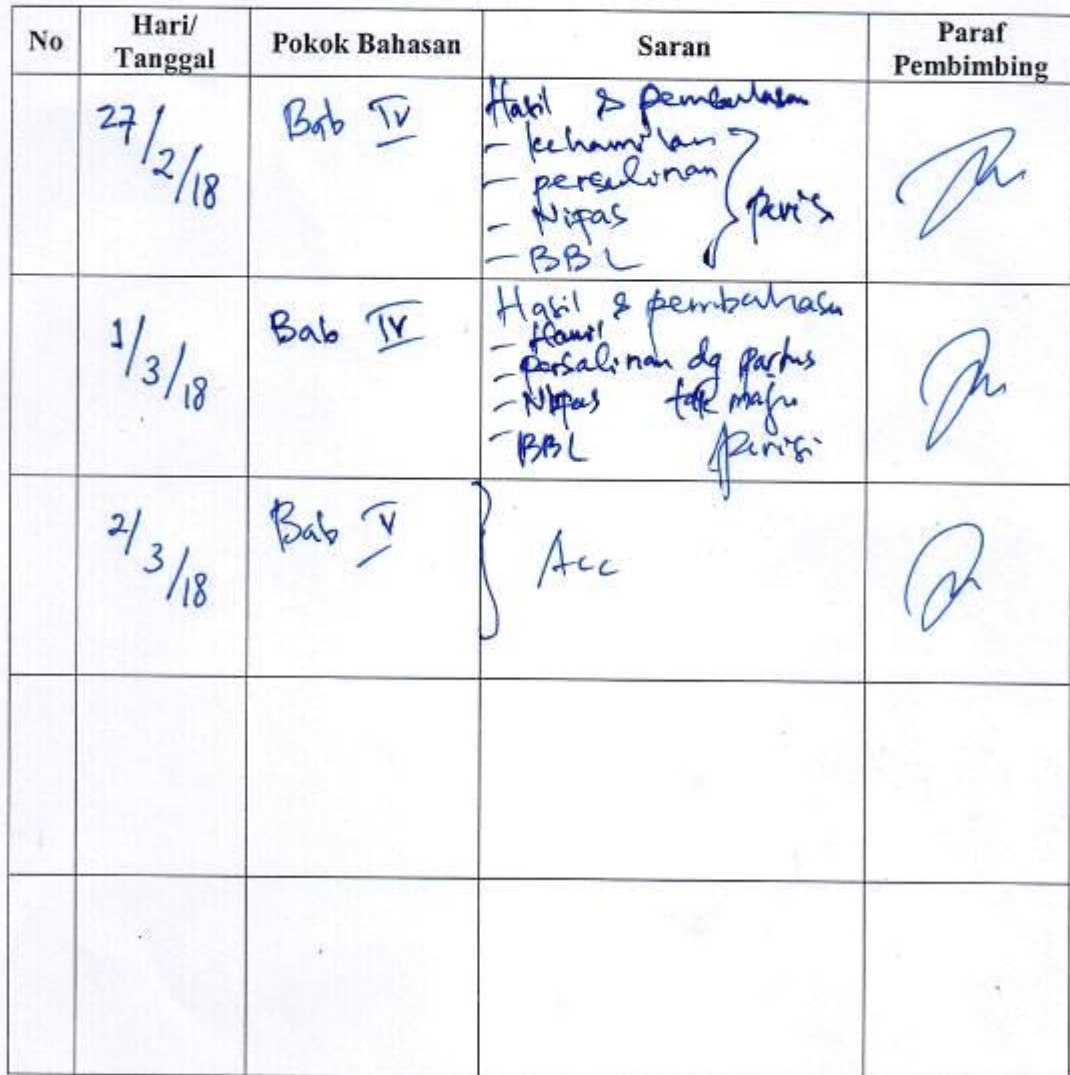 No Hari/ Tanggal Pokok Bahasan Saran Paraf Pembimbing
27/2/18 Bab IV Hasil & pembahasan
- kehamilan
- persalinan
- Nifas
- BBL
1/3/18 Bab IV Hasil & pembahasan
- Hamil
- persalinan dg partus
- Nifas tak maju
- BBL
2/3/18 Bab V Acc